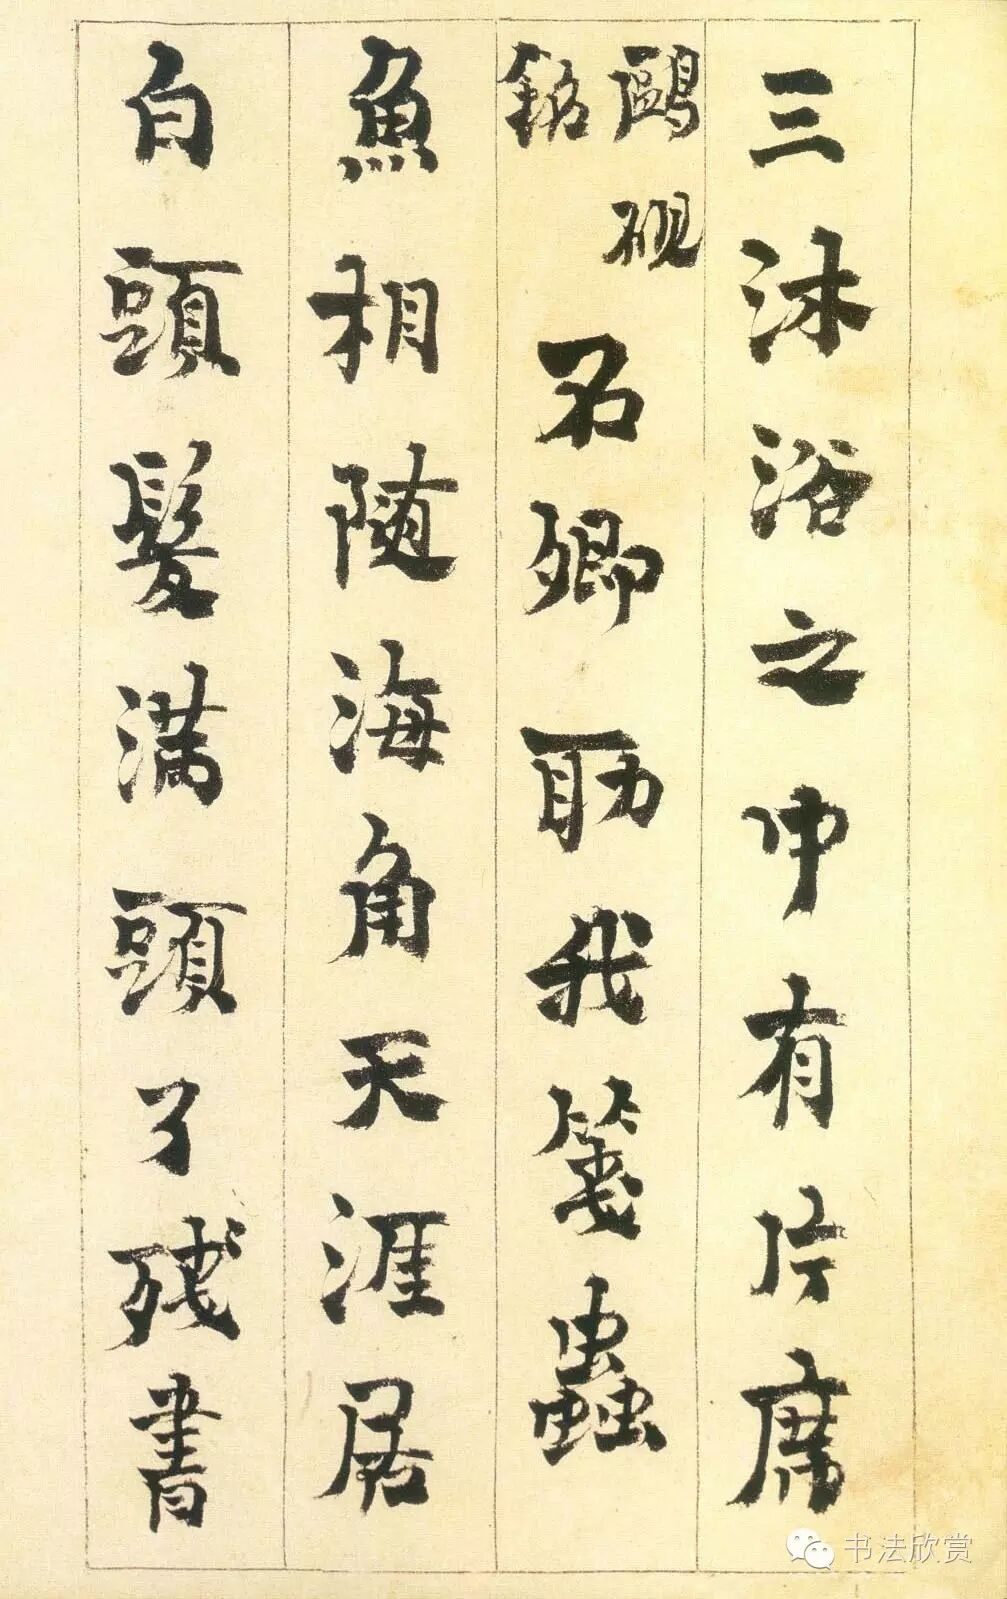 三沐浴之中有片席
鷗硯
銘
石卿助我箋蟲
魚相随海角天涯居
白頭髮满頭了残書
书法欣赏